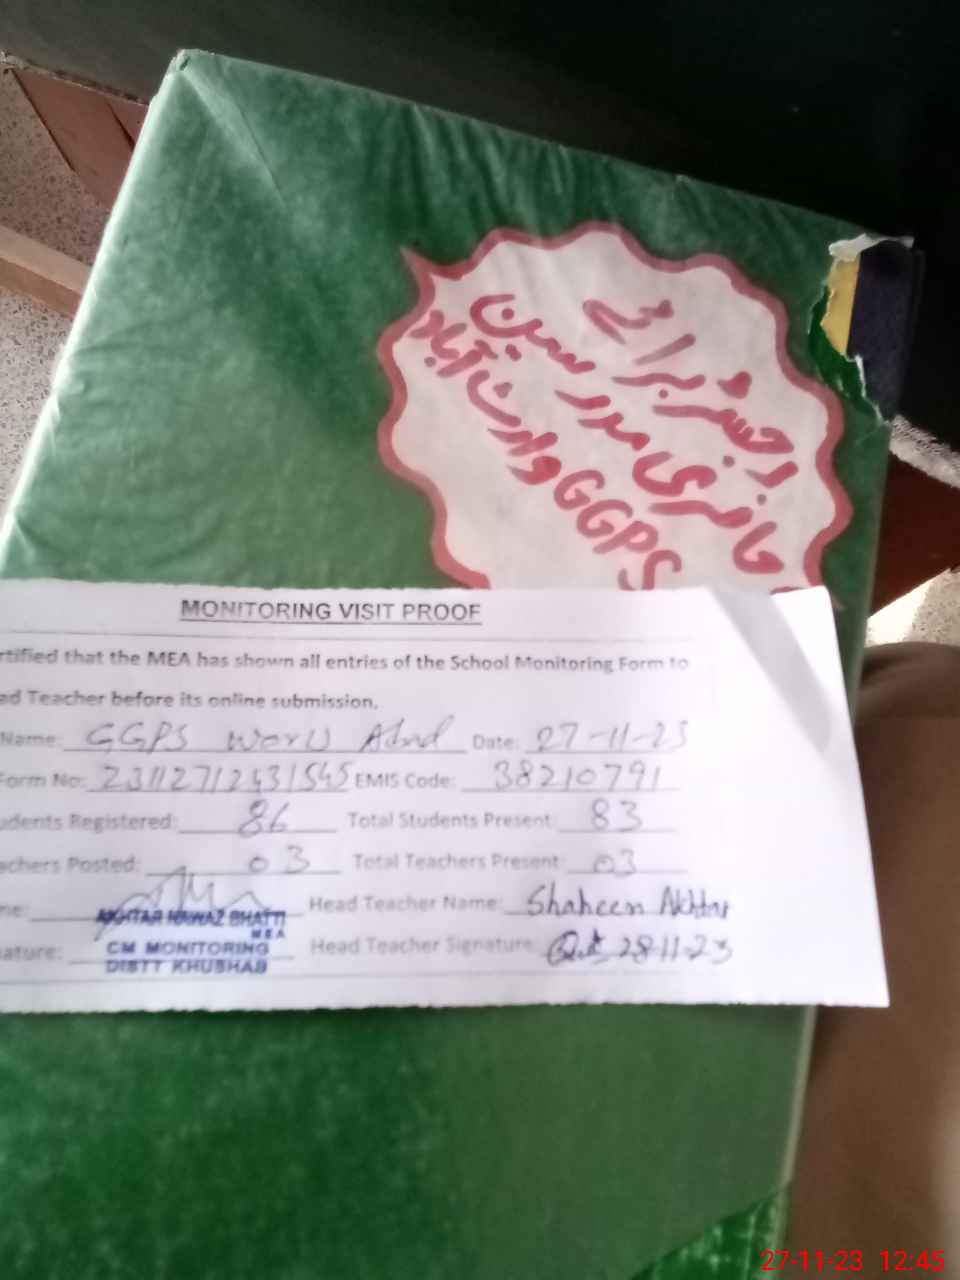 رجسٹر برائے
حاضری مدرسین
GGPS وارث آباد
MONITORING VISIT PROOF
rtified that the MEA has shown all entries of the School Monitoring Form to
ad Teacher before its online submission.
Name: GGPS Date: 27-11-23
Form No: 23112712431545 EMIS Code: 38210791
udents Registered: 86 Total Students Present: 83
achers Posted: 03 Total Teachers Present: 03
me: AKHTAR NAWAZ BHATTI Head Teacher Name: Shaheen Akhtar
MEA
ature: CM MONITORING Head Teacher Signature 28-11-23
DISTT KHUSHAB
27-11-23 12:45